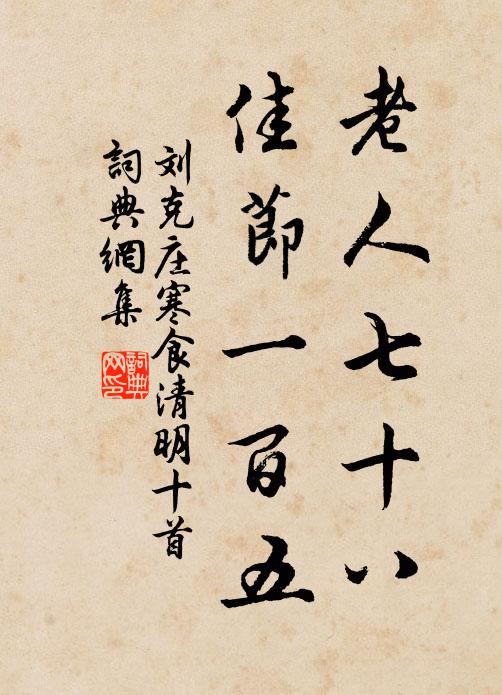 老人七十八
佳節一百五
刘克庄寒食清明十首
詞典網集
詞典網印